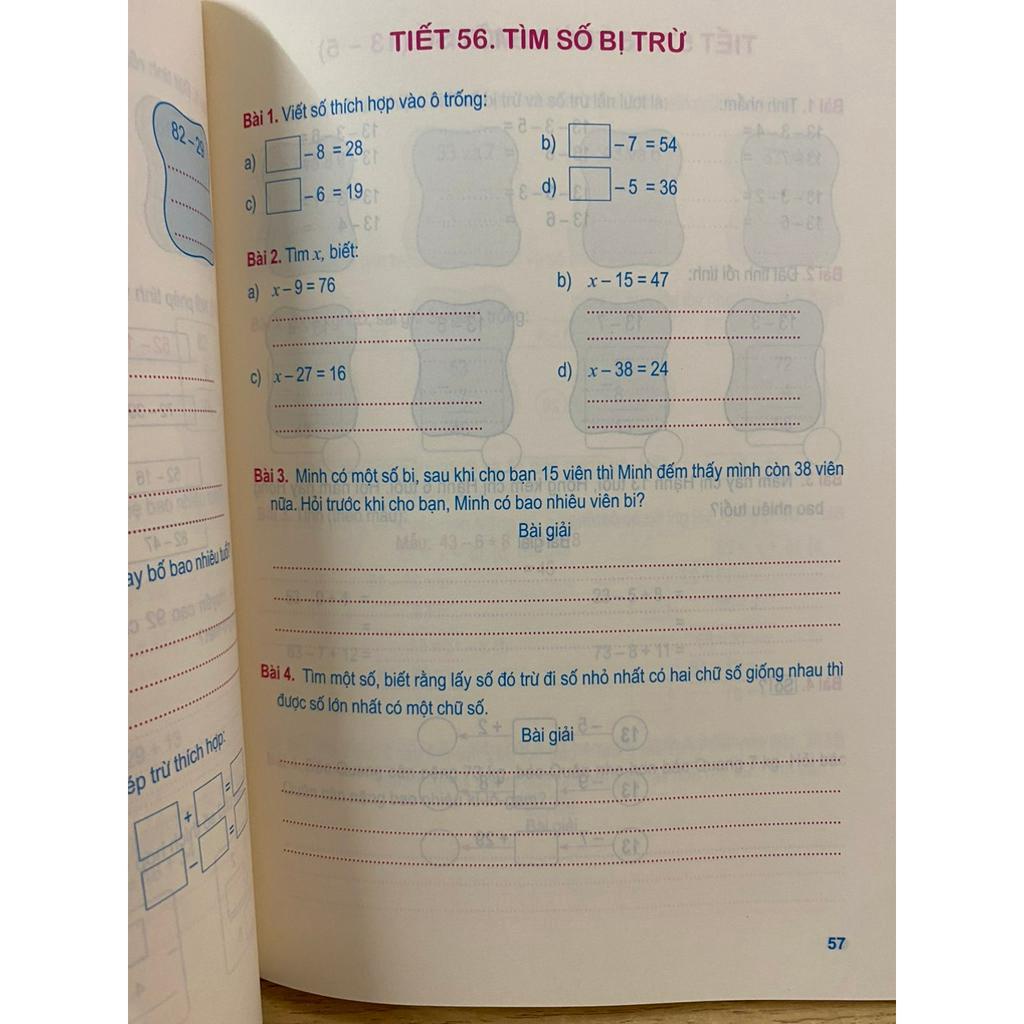 TIẾT 56. TÌM SỐ BỊ TRỪ
Bài 1. Viết số thích hợp vào ô trống:
a) – 8 = 28
b) – 7 = 54
c) – 6 = 19
d) – 5 = 36
Bài 2. Tìm x, biết:
a) x – 9 = 76
b) x – 15 = 47
c) x – 27 = 16
d) x – 38 = 24
Bài 3. Minh có một số bi, sau khi cho bạn 15 viên thì Minh đếm thấy mình còn 38 viên
nữa. Hỏi trước khi cho bạn, Minh có bao nhiêu viên bi?
Bài giải
Bài 4. Tìm một số, biết rằng lấy số đó trừ đi số nhỏ nhất có hai chữ số giống nhau thì
được số lớn nhất có một chữ số.
Bài giải
57
82 – 29
ay bố bao nhiêu tuổi?
ép trừ thích hợp:
+ =
– =